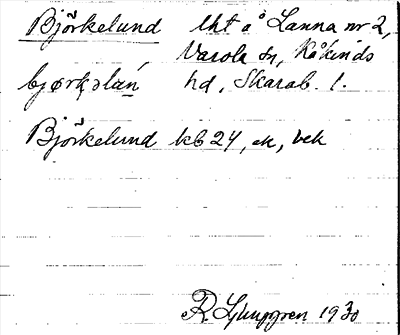 Björkelund lht å Lanna nr 2,
Varola sn, Kåkinds
bjørkəlán hd, Skarab. l.
Björkelund kb 24, ek, bek
R Ljunggren 1930